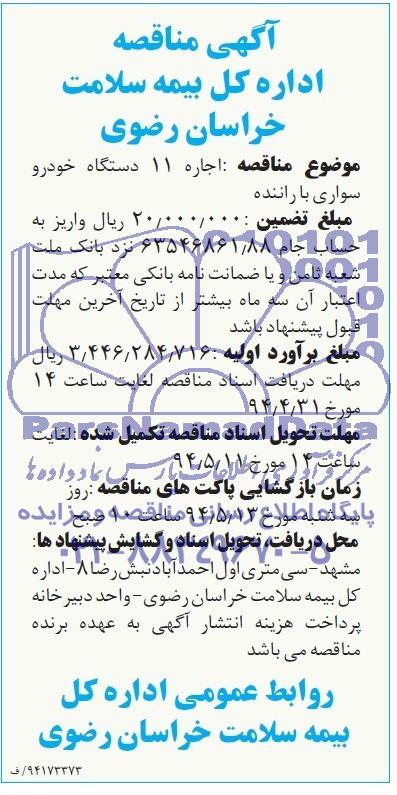 آگهی مناقصه
اداره کل بیمه سلامت
خراسان رضوی
موضوع مناقصه :اجاره ۱۱ دستگاه خودرو
سواری با راننده
مبلغ تضمین :۲۰٫۰۰۰٫۰۰۰ ریال واریز به
حساب جام ۶۳۵۴۶۸۶۱٫۸۸ نزد بانک ملت
شعبه ثامن و یا ضمانت نامه بانکی معتبر که مدت
اعتبار آن سه ماه بیشتر از تاریخ آخرین مهلت
قبول پیشنهاد باشد
مبلغ برآورد اولیه :۳٫۴۴۶٫۲۸۴٫۷۱۶ ریال
مهلت دریافت اسناد مناقصه لغایت ساعت ۱۴
مورخ ۹۴٫۴٫۳۱
ParsNamadData
مهلت تحویل اسناد مناقصه تکمیل شده :لغایت
ساعت ۱۴ مورخ ۹۴٫۵٫۱۱
زمان بازگشایی پاکت های مناقصه :روز
سه شنبه مورخ ۹۴٫۵٫۱۳ ساعت ۱۰ صبح
پایگاه اطلاع رسانی مناقصه و مزایده
محل دریافت، تحویل اسناد و گشایش پیشنهاد ها:
۰۲۱-۸۸۳۴۹۶۷۰-۵
مشهد-سی متری اول احمدآباد نبش رضا ۸-اداره
کل بیمه سلامت خراسان رضوی-واحد دبیرخانه
پرداخت هزینه انتشار آگهی به عهده برنده
مناقصه می باشد
روابط عمومی اداره کل
بیمه سلامت خراسان رضوی
۹۴۱۷۳۳۷۳/ ف